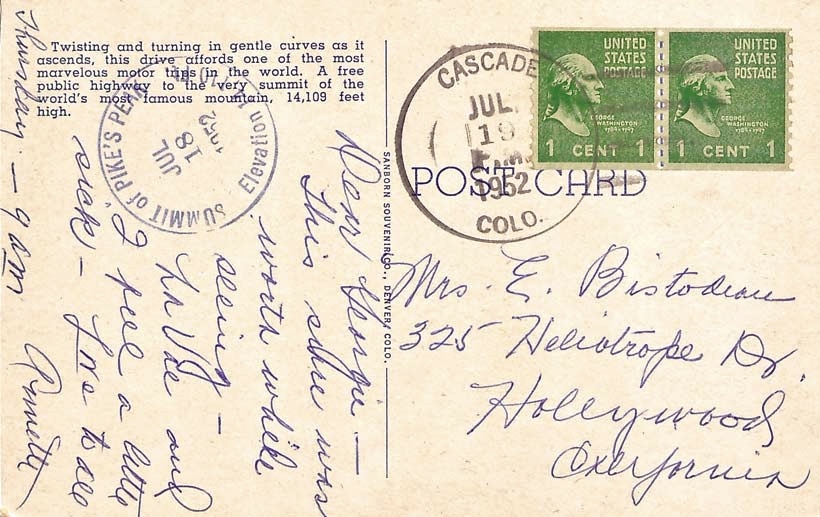 Twisting and turning in gentle curves as it
ascends, this drive affords one of the most
marvelous motor trips in the world. A free
public highway to the very summit of the
world's most famous mountain, 14,109 feet
high.
SUMMIT of PIKE'S PEAK
Elevation
JUL
18
1952
Thursday - 9 am
Dear Georgie -
This sure was
worth while
seeing -
LaVae and
I feel a little
sick - Love to all
Annette
SANBORN SOUVENIR CO., DENVER, COLO.
CASCADE
JUL
19
1952
COLO.
UNITED
STATES
POSTAGE
GEORGE
WASHINGTON
1789-1797
1 CENT 1
UNITED
STATES
POSTAGE
GEORGE
WASHINGTON
1789-1797
1 CENT 1
POST CARD
Mrs. E. Bistodeau
325 Heliotrope Dr.
Hollywood
California